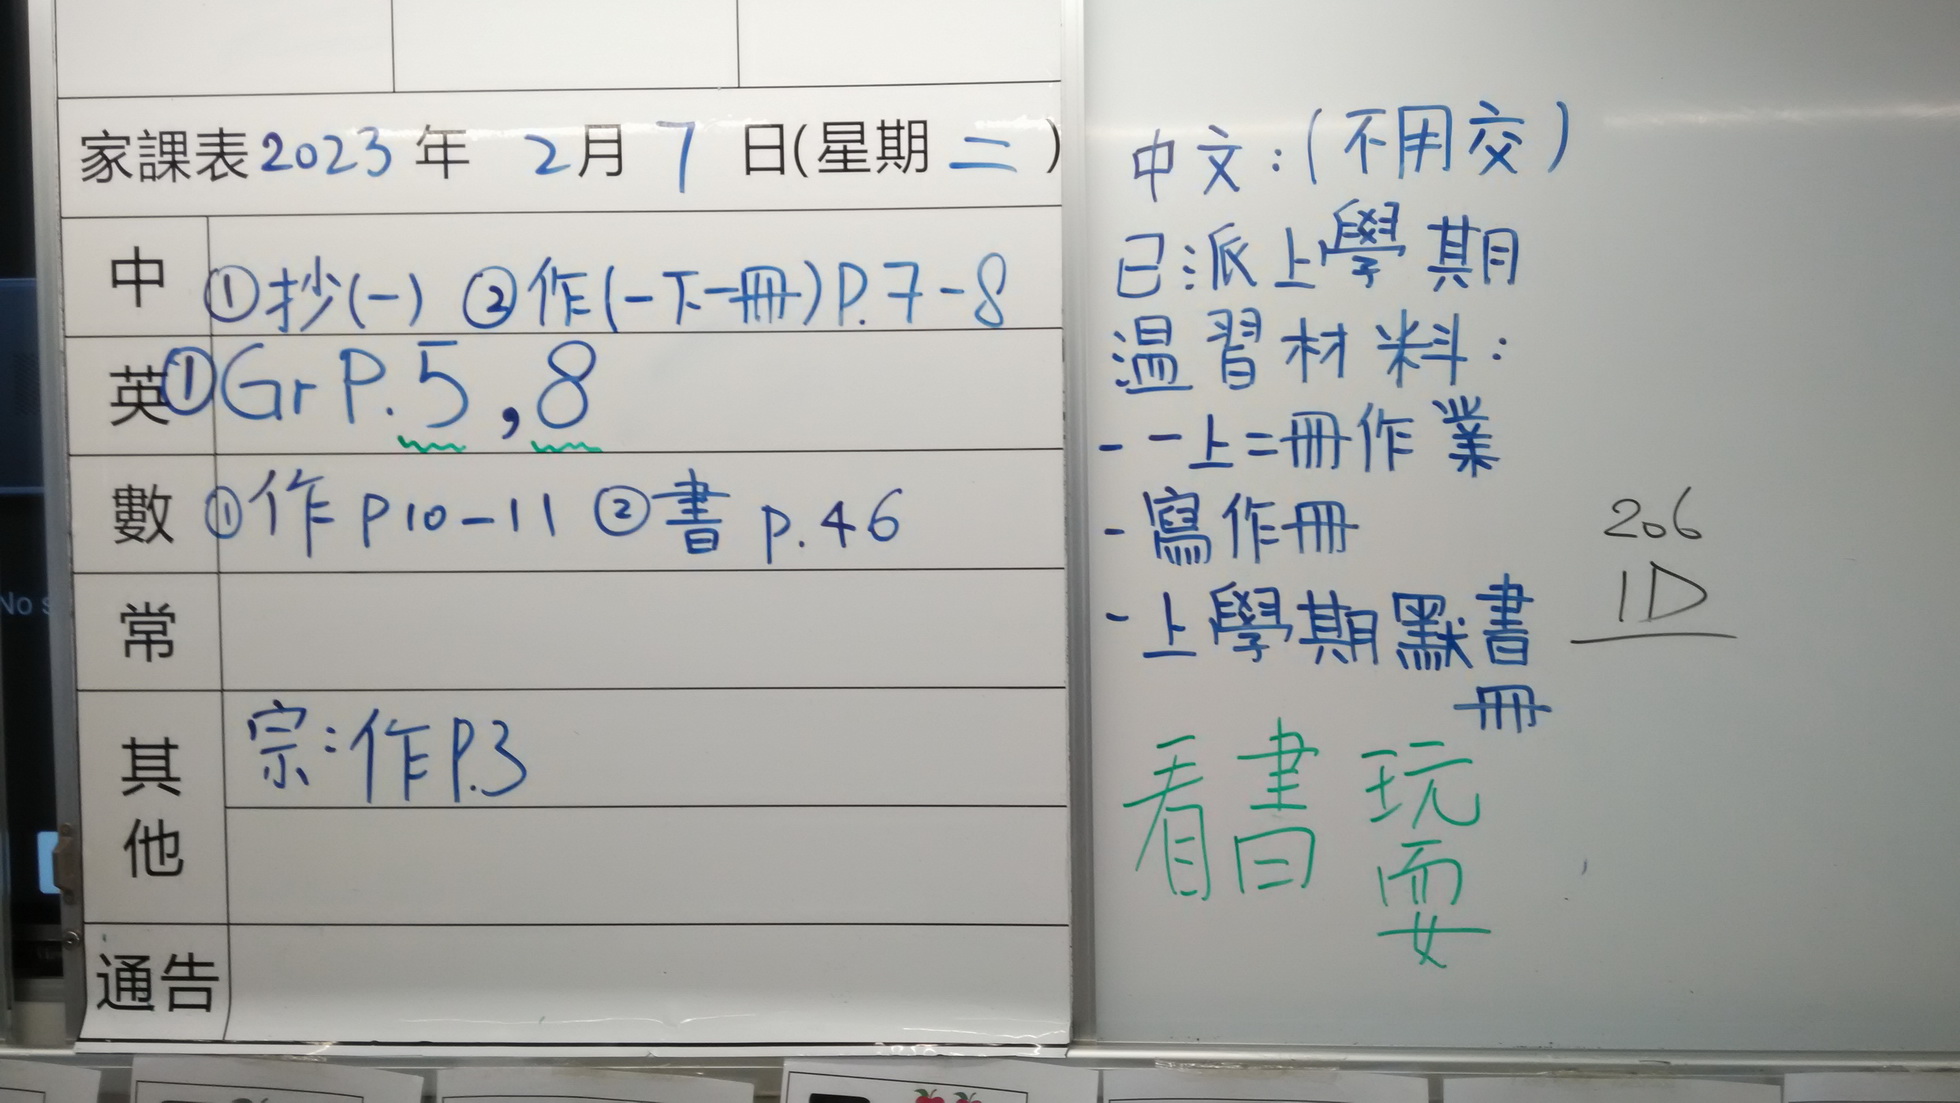 家課表2023年 2月7日(星期二)
中 ①抄(一) ②作(一下一冊)P.7-8
英 ①Gr P.5,8
數 ①作 P10-11 ②書 p.46
常
其他 宗:作P.3
通告
中文:(不用交)
已派上學期
溫習材料:
- 一上二冊作業
- 寫作冊
- 上學期默書
冊
看書 玩
耍
206
1D
No s